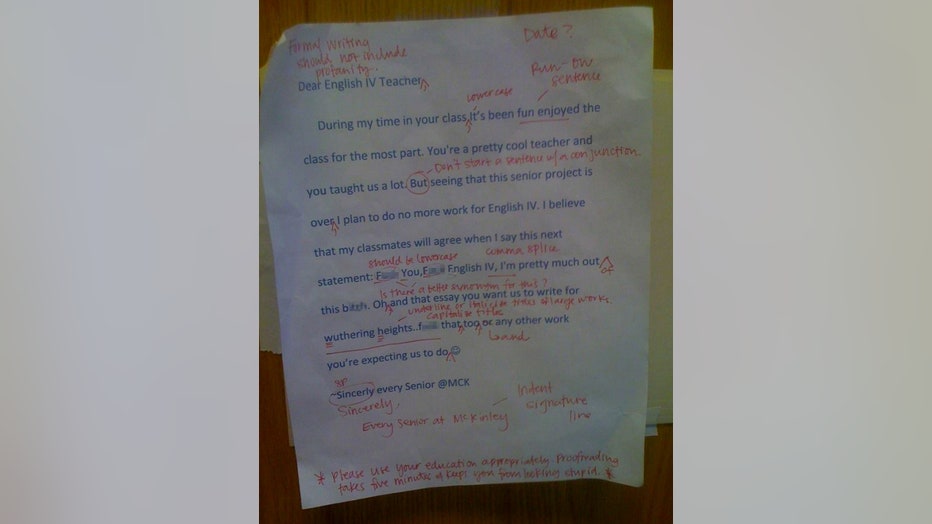 Formal writing
should not include
profanity.
Date?
Run-on
sentence
Dear English IV Teacher
lowercase
During my time in your class,It's been fun enjoyed the
class for the most part. You're a pretty cool teacher and
Don't start a sentence w/ a conjunction.
you taught us a lot. But seeing that this senior project is
over I plan to do no more work for English IV. I believe
that my classmates will agree when I say this next
should be lowercase
comma splice
statement: F You,F English IV, I'm pretty much out
of
Is there a better synonym for this?
this b ch. Oh and that essay you want us to write for
underline or italicize titles of large works.
capitalize titles
wuthering heights..f that too or any other work
and
you're expecting us to do
sp
~Sincerly every Senior @MCK
Sincerely,
Every Senior at McKinley
Indent
signature
line
* Please use your education appropriately. Proofreading
takes five minutes & keeps you from looking stupid. *